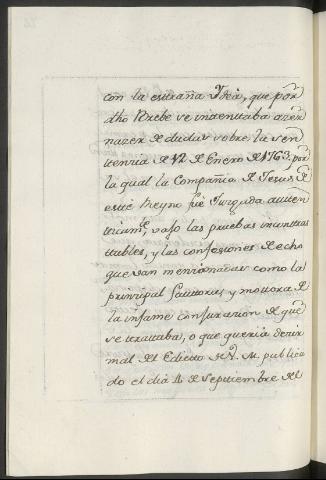 con la estraña Ydea, que por
dho Brebe se intentaba
nazer de dudar sobre la sen
tencia de 12 de Enero de 1763. por
la qual la Compañia de Jesus de
este Reyno fué Juzgada auten
ticamte, vajo las pruebas incontras
tables, y las confesiones de echo
que van mencionadas como la
principal fautora y mottora de
la infame conjurazion de que
se trattaba, o que queria dezir
mal del Edicto de V. M. publica
do el dia 4 de Septiembre del